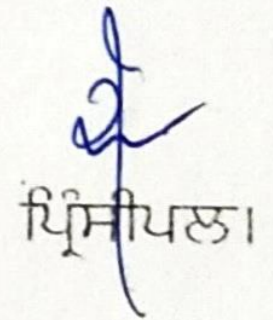 ਪ੍ਰਿੰਸੀਪਲ।